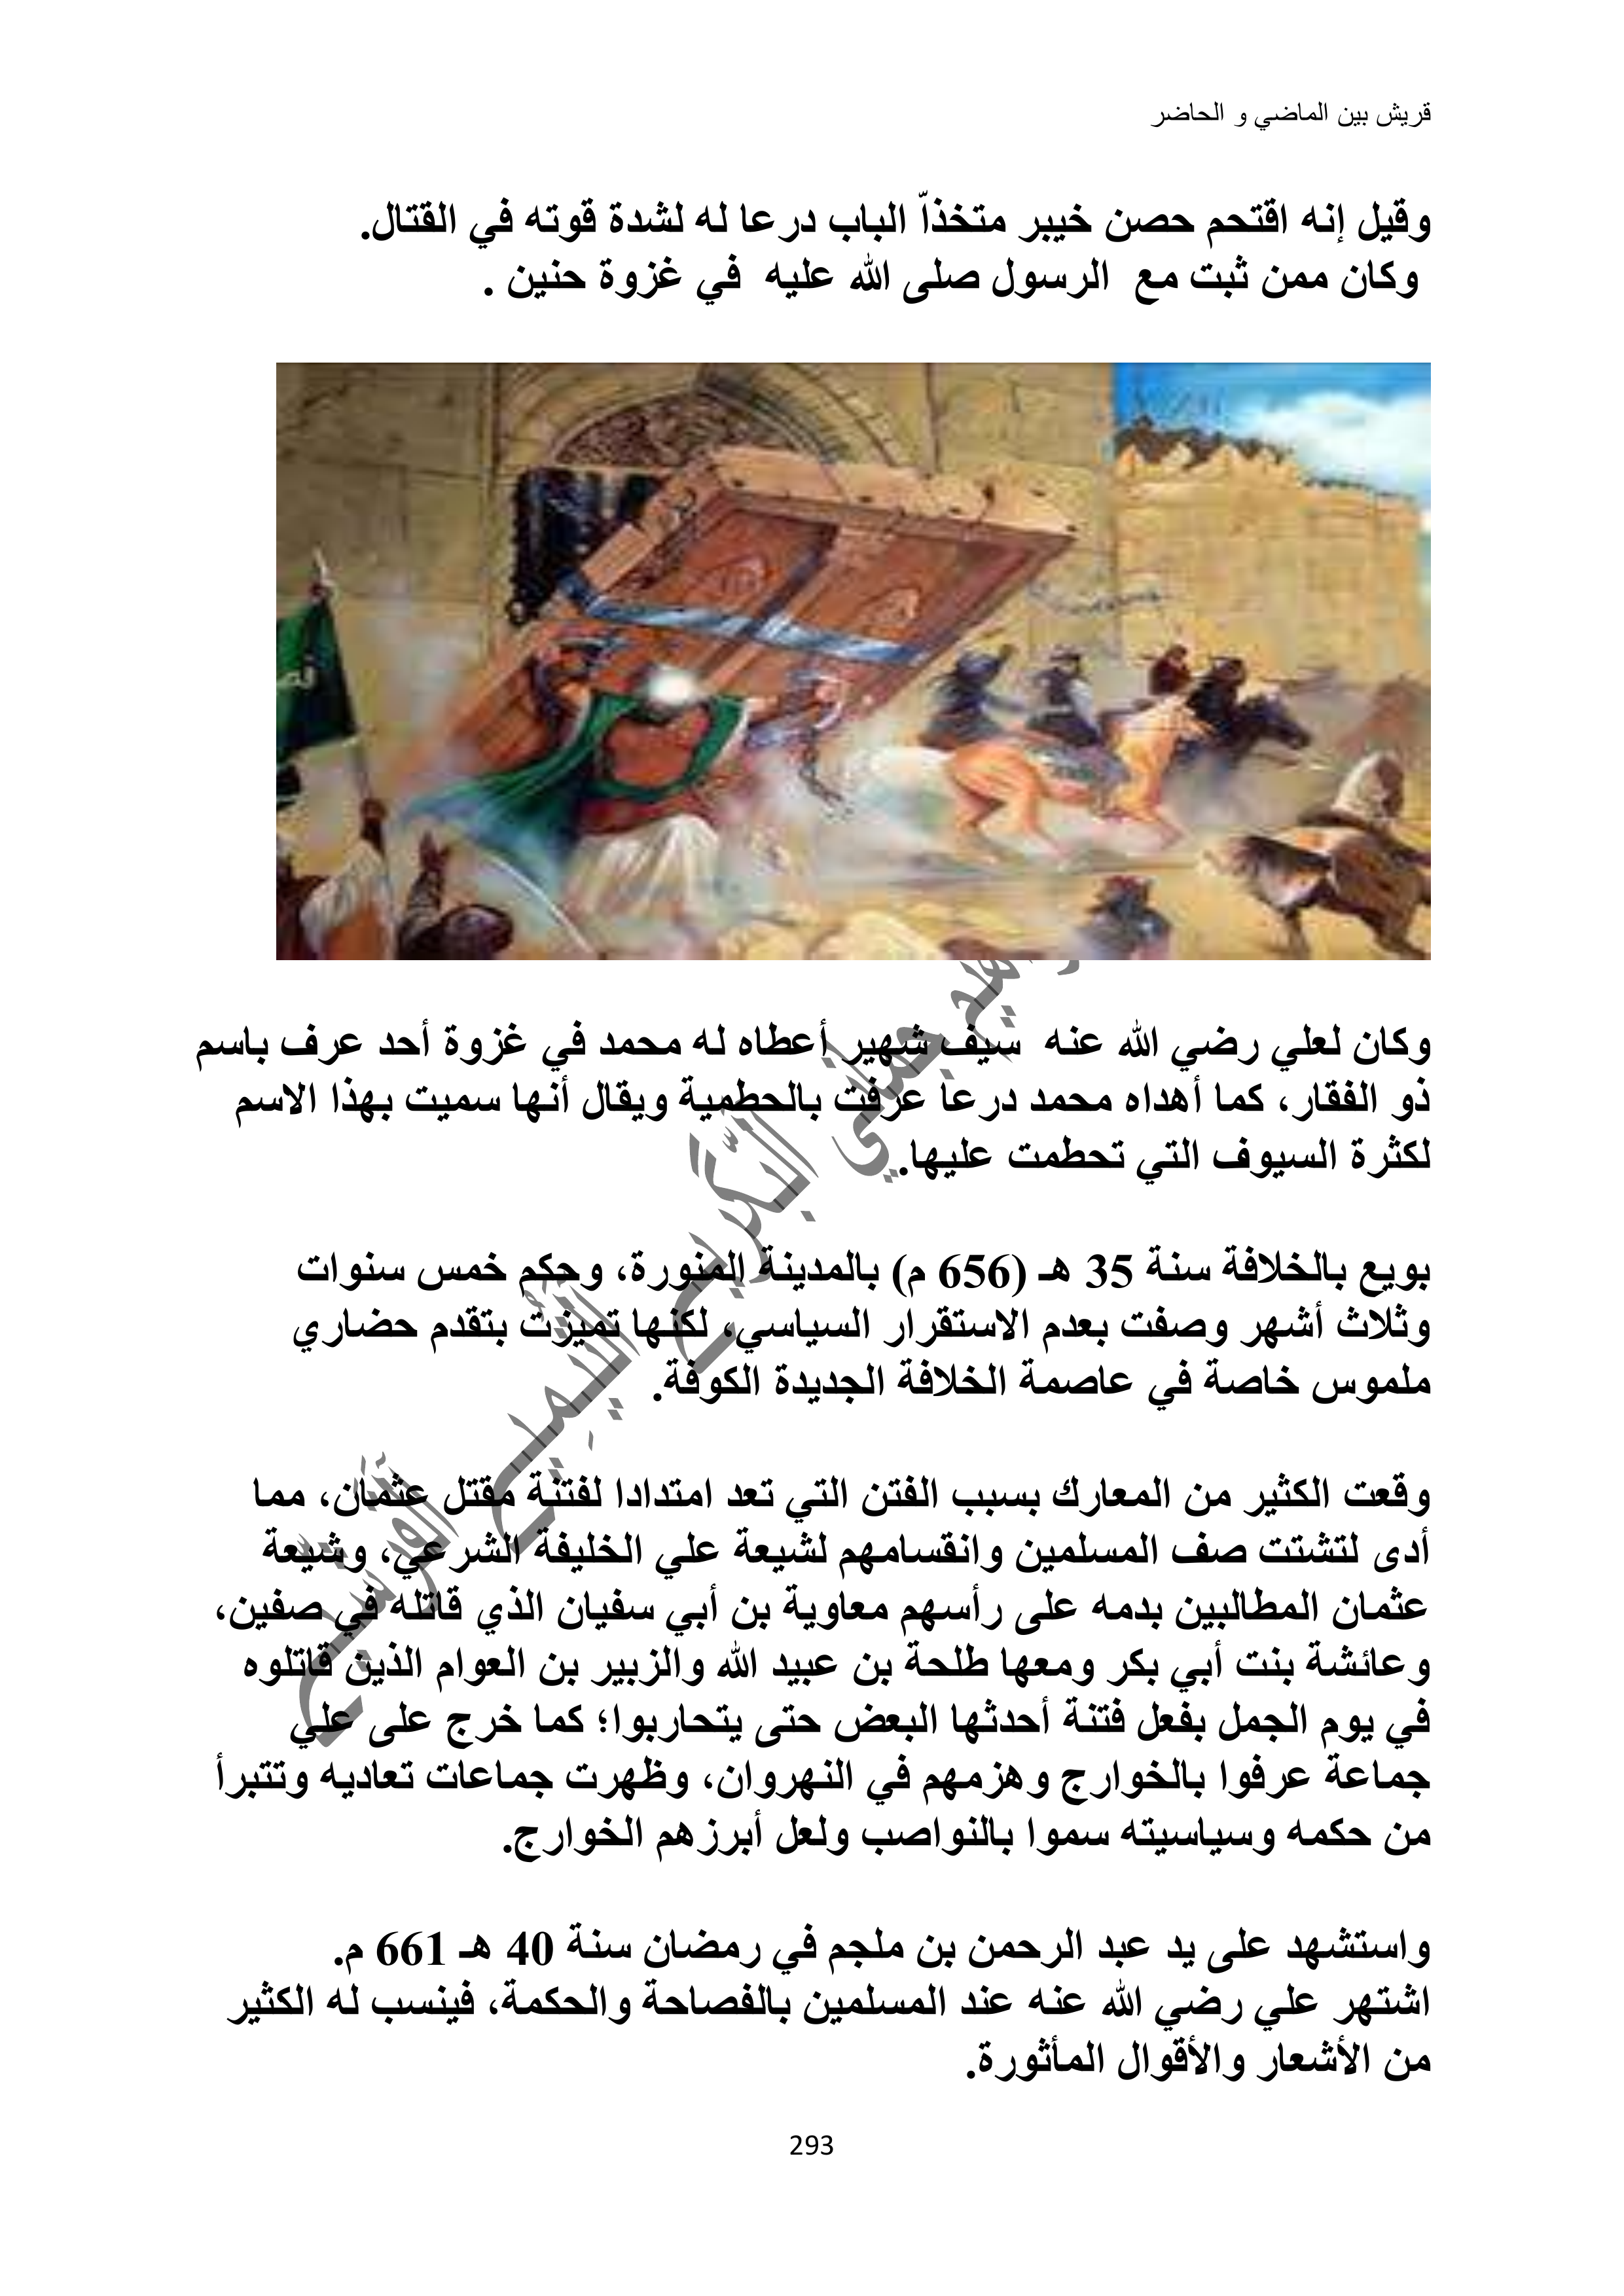 قريش بين الماضي و الحاضر
وقيل إنه اقتحم حصن خيبر متخذاّ الباب درعا له لشدة قوته في القتال.
وكان ممن ثبت مع الرسول صلى الله عليه في غزوة حنين .
وكان لعلي رضي الله عنه سيف شهير أعطاه له محمد في غزوة أحد عرف باسم
ذو الفقار، كما أهداه محمد درعا عرفت بالحطمية ويقال أنها سميت بهذا الاسم
لكثرة السيوف التي تحطمت عليها.
بويع بالخلافة سنة 35 هـ (656 م) بالمدينة المنورة، وحكم خمس سنوات
وثلاث أشهر وصفت بعدم الاستقرار السياسي، لكنها تميزت بتقدم حضاري
ملموس خاصة في عاصمة الخلافة الجديدة الكوفة.
وقعت الكثير من المعارك بسبب الفتن التي تعد امتدادا لفتنة مقتل عثمان، مما
أدى لتشتت صف المسلمين وانقسامهم لشيعة علي الخليفة الشرعي، وشيعة
عثمان المطالبين بدمه على رأسهم معاوية بن أبي سفيان الذي قاتله في صفين،
وعائشة بنت أبي بكر ومعها طلحة بن عبيد الله والزبير بن العوام الذين قاتلوه
في يوم الجمل بفعل فتنة أحدثها البعض حتى يتحاربوا؛ كما خرج على علي
جماعة عرفوا بالخوارج وهزمهم في النهروان، وظهرت جماعات تعاديه وتتبرأ
من حكمه وسياسيته سموا بالنواصب ولعل أبرزهم الخوارج.
واستشهد على يد عبد الرحمن بن ملجم في رمضان سنة 40 هـ 661 م.
اشتهر علي رضي الله عنه عند المسلمين بالفصاحة والحكمة، فينسب له الكثير
من الأشعار والأقوال المأثورة.
293